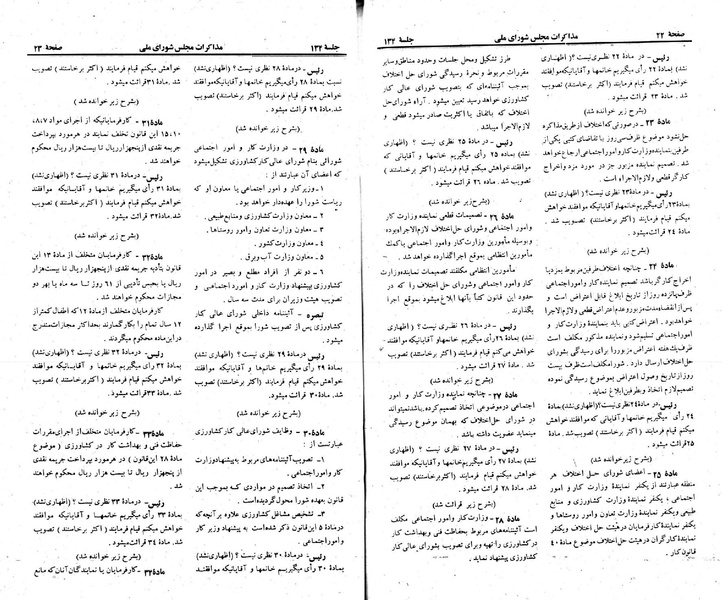 صفحهٔ ۲۲
مذاکرات مجلس شورای ملی
جلسهٔ ۱۳۲
رئیس - در مادهٔ ۲۲ نظری نیست؟ (اظهاری
نشد) بمادهٔ ۲۲ رأی میگیریم خانمها و آقایانیکه
موافقند خواهش میکنم قیام فرمایند (اکثر برخاستند)
تصویب شد . مادهٔ ۲۳ قرائت میشود.
(بشرح زیر خوانده شد)
مادهٔ ۲۳ - درصورتی‌که اختلاف از طریق مذاکره
حل نشود موضوع ظرف سی روز با تقاضای کتبی یکی از
طرفین نمایندهٔ وزارت کار و امور اجتماعی ارجاع خواهد
شد. تصمیم نماینده مزبور جز در مورد مزد و اخراج
کارگر قطعی و لازم‌الاجراء است.
رئیس - در مادهٔ ۲۳ نظری نیست؟ (اظهاری نشد)
بمادهٔ ۲۳ رأی میگیریم خانمها و آقایانیکه موافقند خواهش
میکنم قیام فرمایند (اکثر برخاستند) تصویب شد.
مادهٔ ۲۴ قرائت میشود.
(بشرح زیر خوانده شد)
مادهٔ ۲۴ - چنانچه اختلاف طرفین مربوط بمزد یا
اخراج کارگر باشد تصمیم نماینده کار و امور اجتماعی
ظرف پانزده روز از تاریخ ابلاغ قابل اعتراض است و
پس از انقضاء مدت مزبور و عدم اعتراض قطعی و لازم‌الاجرا
خواهد بود. اعتراض کتبی باید بنماینده وزارت کار و
امور اجتماعی تسلیم شود و نماینده مذکور مکلف است
ظرف یک هفته اعتراض مزبور را برای رسیدگی بشورای
حل اختلاف ارسال دارد . شورا مکلف است ظرف بیست
روز از تاریخ وصول اعتراض بموضوع رسیدگی نموده
تصمیم لازم اتخاذ و بطرفین ابلاغ نماید.
رئیس - در مادهٔ ۲۴ نظری نیست؟ (اظهاری نشد) بمادهٔ
۲۴ رأی میگیریم خانمها و آقایانیکه موافقند خواهش
میکنم قیام فرمایند (اکثر برخاستند) تصویب شد. مادهٔ
۲۵ قرائت میشود.
(بشرح زیر خوانده شد)
مادهٔ ۲۵ - اعضای شورای حل اختلاف هر
منطقه عبارتند از یکنفر نمایندهٔ وزارت کار و امور
اجتماعی ، یکنفر نمایندهٔ وزارت کشاورزی و منابع
طبیعی و یکنفر نمایندهٔ وزارت تعاون و امور روستاها و
یکنفر نمایندهٔ کارفرمایان در هیئت حل اختلاف و یکنفر
نمایندهٔ کارگران در هیئت حل اختلاف موضوع مادهٔ ۴۰
قانون کار .
طرز تشکیل و محل جلسات و حدود مناطق و سایر
مقررات مربوط و نحوهٔ رسیدگی شورای حل اختلاف
بموجب آئیننامه‌ای که بتصویب شورای عالی کار
کشاورزی خواهد رسید تعیین میشود . آراء شورای حل
اختلاف که باتفاق یا اکثریت صادر میشود قطعی و
لازم‌الاجرا میباشد.
رئیس - در مادهٔ ۲۵ نظری نیست؟ (اظهاری
نشد) بمادهٔ ۲۵ رأی میگیریم خانمها و آقایانی که
موافقند خواهش میکنم قیام فرمایند (اکثر برخاستند)
تصویب شد . مادهٔ ۲۶ قرائت میشود.
(بشرح زیر خوانده شد)
مادهٔ ۲۶ - تصمیمات قطعی نماینده وزارت کار
و امور اجتماعی و شورای حل اختلاف لازم‌الاجرا بوده
و بوسیله مأمورین وزارت کار و امور اجتماعی با کمک
مأمورین انتظامی بموقع اجرا گذارده خواهد شد.
مأمورین انتظامی مکلفند تصمیمات نماینده وزارت
کار و امور اجتماعی و شورای حل اختلاف را که در
حدود این قانون کتباً بآنها ابلاغ میشود بموقع اجرا
بگذارند.
رئیس - در مادهٔ ۲۶ نظری نیست؟ (اظهاری
نشد) بمادهٔ ۲۶ رأی میگیریم خانمها و آقایانیکه موافقند
خواهش می کنم قیام فرمایند (اکثر برخاستند) تصویب
شد. مادهٔ ۲۷ قرائت میشود.
(بشرح زیر خوانده شد)
مادهٔ ۲۷ - چنانچه نماینده وزارت کار و امور
اجتماعی در موضوعی اتخاذ تصمیم کرده باشد نمیتواند
در شورای حل اختلاف که بهمان موضوع رسیدگی
مینماید عضویت داشته باشد.
رئیس - در مادهٔ ۲۷ نظری نیست؟ (اظهاری
نشد) بمادهٔ ۲۷ رأی میگیریم خانمها و آقایانیکه موافقند
خواهش میکنم قیام فرمایند (اکثر برخاستند) تصویب
شد. مادهٔ ۲۸ قرائت میشود.
(بشرح زیر قرائت شد)
مادهٔ ۲۸ - وزارت کار و امور اجتماعی مکلف
است آئیننامه‌های مربوط بحفاظت فنی و بهداشت کار
در کشاورزی را تهیه و برای تصویب بشورای عالی کار
کشاورزی پیشنهاد نماید.
جلسهٔ ۱۳۲
مذاکرات مجلس شورای ملی
صفحهٔ ۲۳
رئیس - در مادهٔ ۲۸ نظری نیست؟ (اظهاری نشد)
نسبت بمادهٔ ۲۸ رأی میگیریم خانمها و آقایانیکه موافقند
خواهش میکنم قیام فرمایند (اکثر برخاستند) تصویب
شد. مادهٔ ۲۹ قرائت میشود.
(بشرح زیر خوانده شد)
مادهٔ ۲۹ - در وزارت کار و امور اجتماعی
شورائی بنام شورای عالی کار کشاورزی تشکیل میشود
که اعضای آن عبارتند از :
۱ - وزیر کار و امور اجتماعی یا معاون او که
ریاست شورا را عهده‌دار خواهد بود.
۲ - معاون وزارت کشاورزی و منابع طبیعی.
۳ - معاون وزارت تعاون و امور روستاها.
۴ - معاون وزارت کشور.
۵ - معاون وزارت آب و برق.
۶ - دو نفر از افراد مطلع و بصیر در امور
کشاورزی بپیشنهاد وزارت کار و امور اجتماعی و
تصویب هیئت وزیران برای مدت سه سال .
تبصره - آئیننامه داخلی شورای عالی کار
کشاورزی پس از تصویب شورا بموقع اجرا گذارده
میشود.
رئیس - در مادهٔ ۲۹ نظری نیست؟ (اظهاری نشد)
بمادهٔ ۲۹ رأی میگیریم خانمها و آقایانیکه موافقند
خواهش میکنم قیام فرمایند (اکثر برخاستند) تصویب
شد. مادهٔ ۳۰ قرائت میشود.
(بشرح زیر خوانده شد)
مادهٔ ۳۰ - وظایف شورای عالی کار کشاورزی
عبارتست از :
۱ - تصویب آئیننامه‌های مربوط به پیشنهاد وزارت
کار و امور اجتماعی.
۲ - اتخاذ تصمیم در مواردی که بموجب این
قانون بعهده شورا محول گردیده است.
۳ - تشخیص مشاغل کشاورزی علاوه بر آنچه که
در مادهٔ ۵ این قانون ذکر شده است به پیشنهاد وزیر کار
و امور اجتماعی.
رئیس - در مادهٔ ۳۰ نظری نیست؟ (اظهاری نشد)
بمادهٔ ۳۰ رأی میگیریم خانمها و آقایانیکه موافقند
خواهش میکنم قیام فرمایند (اکثر برخاستند) تصویب
شد. مادهٔ ۳۱ قرائت میشود.
(بشرح زیر خوانده شد)
مادهٔ ۳۱ - کارفرمایانیکه از اجرای مواد ۷،۸
۱۰، ۱۵ این قانون تخلف نمایند در هر مورد بپرداخت
جریمه نقدی از پنجهزار ریال تا بیست هزار ریال محکوم
خواهند شد.
رئیس - در مادهٔ ۳۱ نظری نیست؟ (اظهاری نشد)
بمادهٔ ۳۱ رأی میگیریم خانمها و آقایانیکه موافقند
خواهش میکنم قیام فرمایند (اکثر برخاستند) تصویب
شد. مادهٔ ۳۲ قرائت میشود.
(بشرح زیر خوانده شد)
مادهٔ ۳۲ - کارفرمایان متخلف از مادهٔ ۱۳ این
قانون بتأدیه جریمه نقدی از پنجهزار ریال تا بیست هزار
ریال یا بحبس تأدیبی از ۶۱ روز تا سه ماه یا بهر دو
مجازات محکوم خواهند شد.
کارفرمایان متخلف از مادهٔ ۱۲ که اطفال کمتر از
۱۲ سال تمام را بکار گمارند بحداکثر مجازات مندرج
در این ماده محکوم میگردند.
رئیس - در مادهٔ ۳۲ نظری نیست؟ (اظهاری نشد)
بمادهٔ ۳۲ رأی میگیریم خانمها و آقایانیکه موافقند
خواهش میکنم قیام فرمایند (اکثر برخاستند) تصویب
شد. مادهٔ ۳۳ قرائت میشود.
(بشرح زیر خوانده شد)
مادهٔ ۳۳ - کارفرمایان متخلف از اجرای مقررات
حفاظت فنی و بهداشت کار در کشاورزی (موضوع
مادهٔ ۲۸ این قانون) در هر مورد بپرداخت جریمه نقدی
از پنجهزار ریال تا بیست هزار ریال محکوم خواهند
شد.
رئیس - در مادهٔ ۳۳ نظری نیست؟ (اظهاری نشد)
بمادهٔ ۳۳ رأی میگیریم خانمها و آقایانیکه موافقند
خواهش میکنم قیام فرمایند (اکثر برخاستند) تصویب
شد. مادهٔ ۳۴ قرائت میشود.
(بشرح زیر خوانده شد)
مادهٔ ۳۴ - کارفرمایان یا نمایندگان آنان که مانع